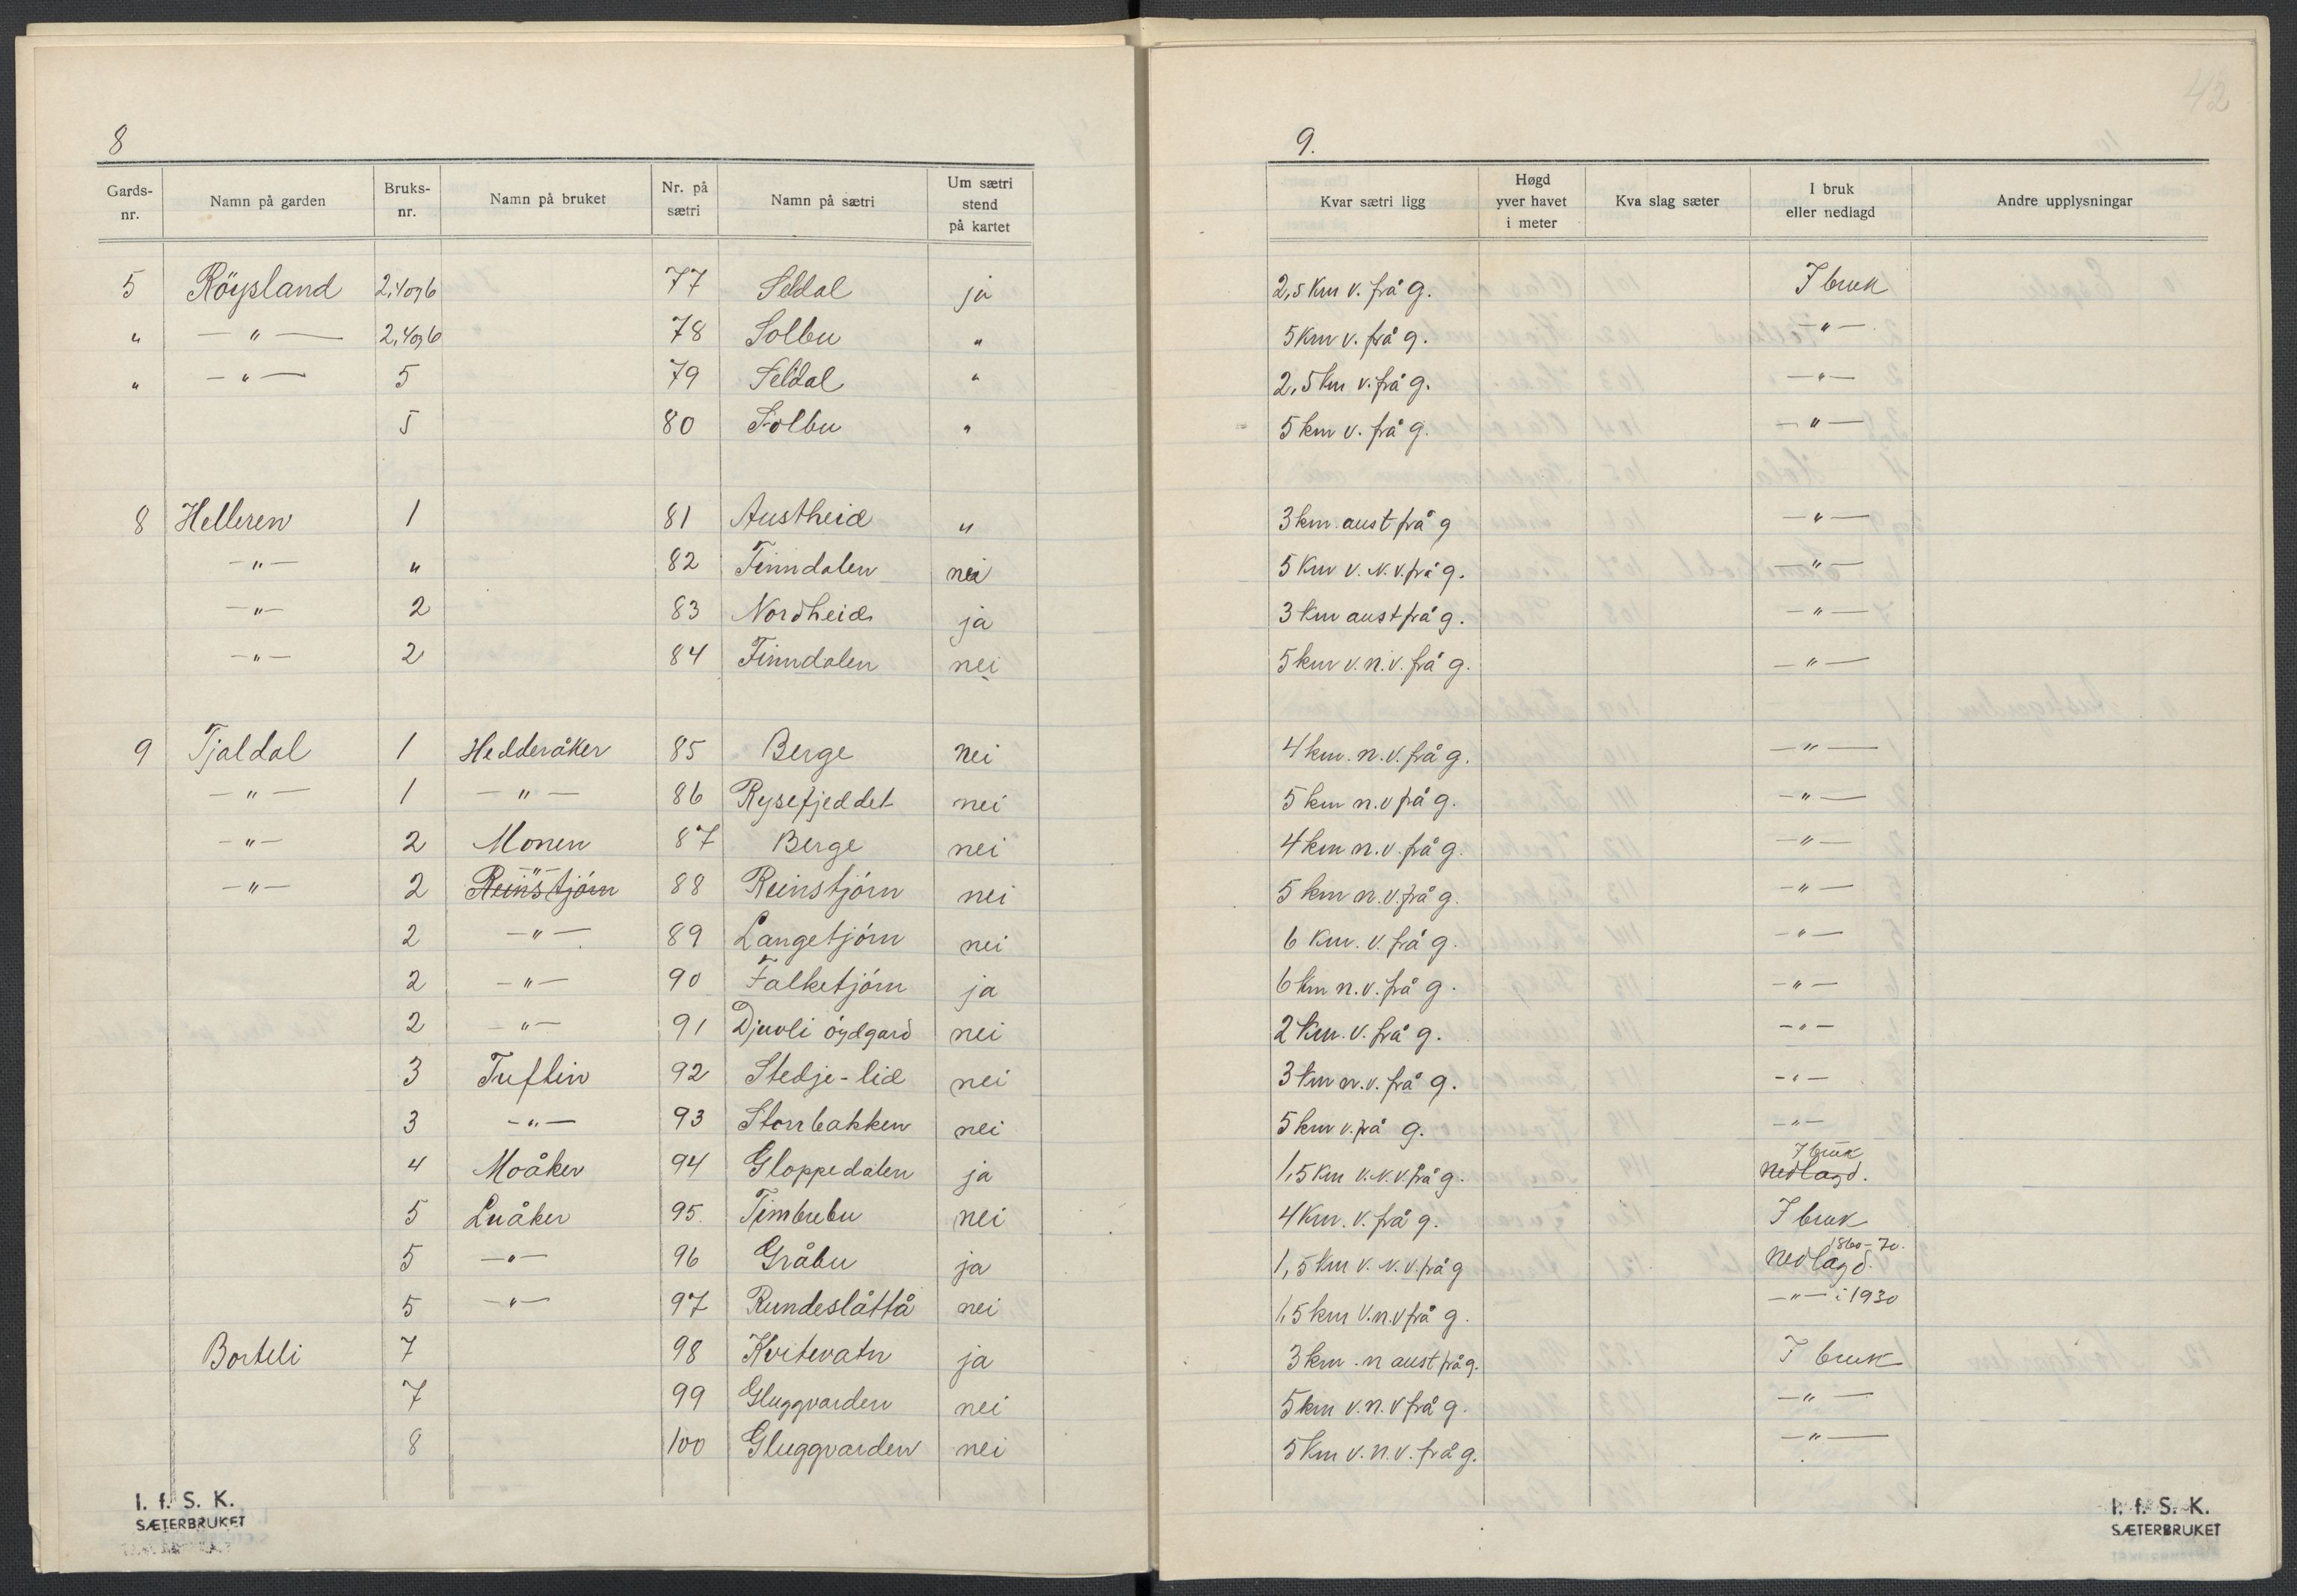 8
Gards-nr. Namn på garden Bruks-nr. Namn på bruket Nr. på sætri Namn på sætri Um sætri stend på kartet
5 Röysland 2,4og6 77 Seldal ja
" —"— 2,4og6 78 Solbu "
" —"— 5 79 Seldal "
5 80 Solbu "
8 Helleren 1 81 Austheid "
—"— " 82 Finndalen nei
—"— 2 83 Nordheid ja
—"— 2 84 Finndalen nei
9 Tjaldal 1 Hedderåker 85 Berge nei
—"— 1 —"— 86 Rysefjeddet nei
—"— 2 Monen 87 Berge nei
—"— 2 Reinstjörn —"— 88 Reinstjörn nei
2 —"— 89 Langetjörn nei
2 —"— 90 Falketjörn ja
2 —"— 91 Djuvli öydgard nei
3 Tuftin 92 Stedje-lid nei
3 —"— 93 Storrbakken nei
4 Moåker 94 Gloppedalen ja
5 Luåker 95. Timbubu nei
5 —"— 96 Gråbu ja
5 —"— 97 Rundeslåttå nei
Borteli 7 98 Kvitevatn ja
7 99 Gluggvarden nei
8 100 Gluggvarden nei
I. f. S. K.
SÆTERBRUKET
42
9.
Kvar sætri ligg Høgd yver havet i meter Kva slag sæter I bruk eller nedlagd Andre upplysningar
2,5 Km v. frå g. I bruk
5 Km v. frå g. —"—
2,5 km v. frå g. —"—
5 km v. frå g. —"—
3 km. aust frå g —"—
5 Km v. N. v. frå g. —"—
3 km aust frå g. —"—
5 km v. n. v. frå g. —"—
4 km. n. v. frå g. —"—
5 km n. v frå g. —"—
4 km n. v. frå g. —"—
5 km n. v. frå g. —"—
6 Km. v. frå g. —"—
6 Km n. v. frå g. —"—
2 Km. v. frå g. —"—
3 km n. v. frå g. —"—
5 km v. frå g. —"—
1,5 Km v. N. v. frå g. I bruk Nedlagd.
4 Km. v. frå g. I bruk
1,5 km v. N. v. frå g Nedlagd. 1860-70.
1,5 km v. n. v frå g. —"— i 1930
3 km. n aust frå g. I bruk
5 km v. n. v frå g. —"—
5 Km v. n. v. frå g. —"—
I. f. S. K.
SÆTERBRUKET